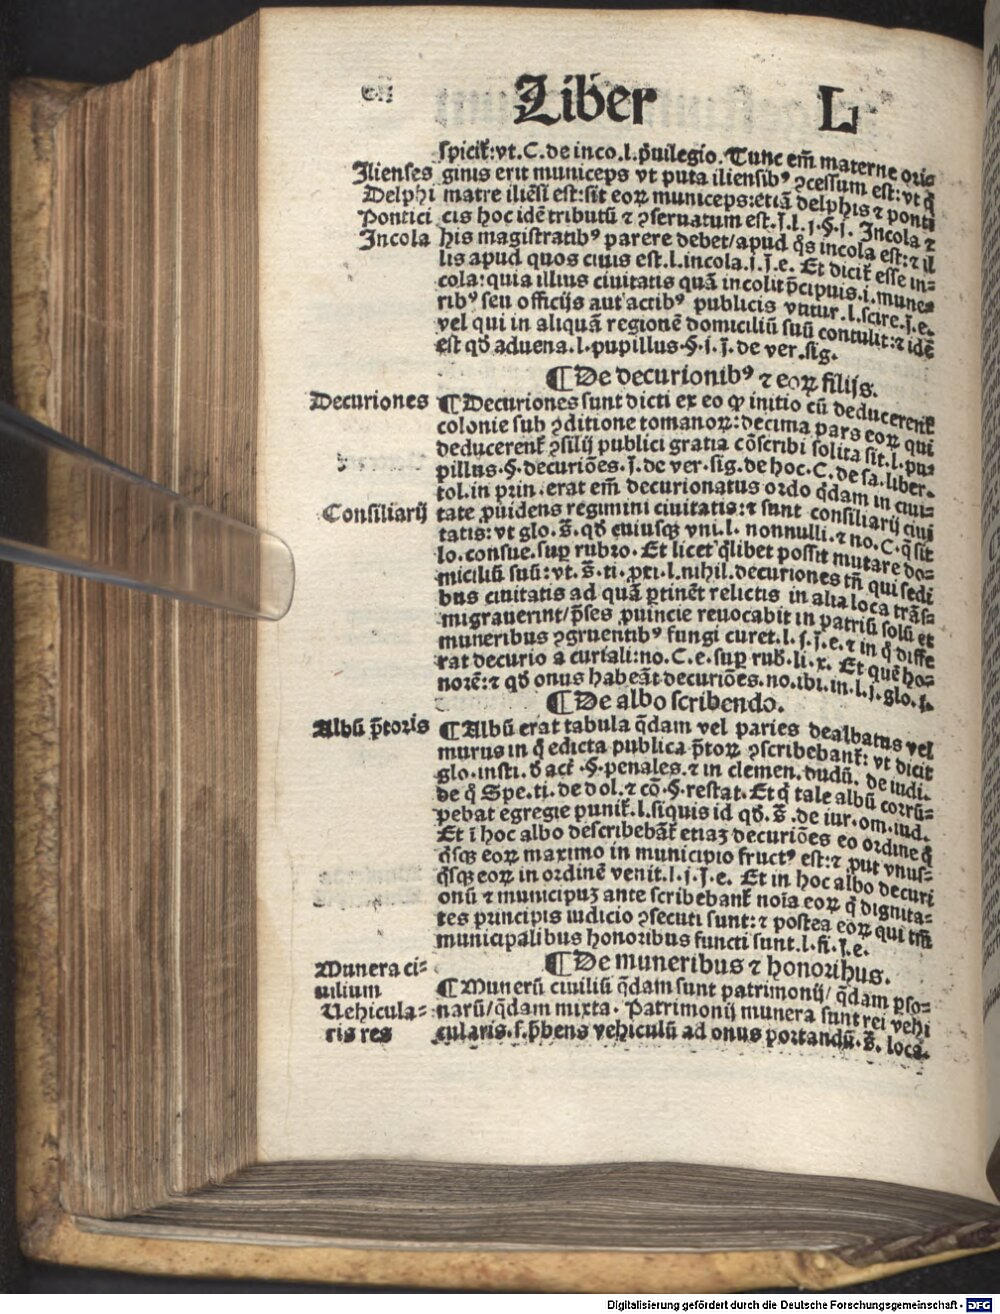 Liber L
spicit᷑:vt.C.de inco.l.p̄uilegio. Tunc em̄ materne oris
Ilienses ginis erit municeps vt puta iliensibꝰ ꝯcessum est:vt q̄
Delphi matre iliēsi est:sit eoꝝ municeps:etiā delphis ⁊ ponti
Pontici cis hoc idē tributū ⁊ ꝯseruatum est.ſ.l.j.§.j. Incola ⁊
Incola his magistratibꝰ parere debet/apud q̄s incola est:⁊ il
lis apud quos ciuis est.l.incola.j.ſ.e. Et dicit᷑ esse in-
cola:quia illius ciuitatis quā incolit p̄cipuis.i.mune-
ribꝰ seu officijs aut actibꝰ publicis vtitur.l.scire.ſ.e.
vel qui in aliquā regionē domiciliū suū contulit:⁊ idē
est qđ aduena.l.pupillus.§.j.ſ.de ver.sig.
¶De decurionibꝰ ⁊ eoꝝ filijs.
Decuriones ¶Decuriones sunt dicti ex eo ꝙ initio cū deducerent᷑
colonie sub ꝯditione romanoꝝ:decima pars eoꝝ qui
deducerent᷑ ꝯsilij publici gratia cōscribi solita sit.l.pu-
pillus.§.decuriōes.ſ.de ver.sig.de hoc.C.de sa.liber.
tol.in prin.erat em̄ decurionatus ordo q̄dam in ciui-
Consiliarij tate ꝓuidens regimini ciuitatis:⁊ sunt consiliarij ciui
tatis:vt glo.s̄.qđ cuiusqꝫ vni.l. nonnulli.⁊ no.C.q̄ sit
lo.consue.suꝑ rubro. Et licet q̄libet possit mutare do-
miciliū suū:vt.s̄.ti.ꝓxi.l.nihil.decuriones tn̄ qui sedi
bus ciuitatis ad quā ꝑtinēt relictis in alia loca trās-
migrauerint/p̄ses ꝓuincie reuocabit in patriū solū et
muneribus ꝯgruentibꝰ fungi curet.l.j.ſ.e.⁊ in q̄ diffe
rat decurio a curiali:no.C.e.suꝑ rub̄.li.x. Et quē ho-
norē:⁊ qđ onus habeāt decuriōes.no.ibi.in.l.j.glo.j.
¶De albo scribendo.
Albū p̄toris ¶Albū erat tabula q̄dam vel paries dealbatus vel
murus in q̄ edicta publica p̄toꝝ ꝯscribebant᷑: vt dicit
glo.insti.đ act᷑.§.penales.⁊ in clemen.dudū. de iudi.
de q̄ Spe.ti.de dol.⁊ cō.§.restat. Et q̄ tale albū corrū-
pebat egregie punit᷑.l.siquis id qđ.s̄.de iur.om.iud.
Et ī hoc albo describebāt᷑ etiaꝫ decuriōes eo ordine q̄
q̄sqꝫ eoꝝ maximo in municipio fructꝰ est:⁊ ꝓut vnus-
q̄sqꝫ eoꝝ in ordinē venit.l.j.ſ.e. Et in hoc albo decuri
onū ⁊ municipuꝫ ante scribebant᷑ noīa eoꝝ q̄ dignita-
tes principis iudicio ꝯsecuti sunt:⁊ postea eoꝝ qui tm̄
municipalibus honoribus functi sunt.l.fi.ſ.e.
¶De muneribus ⁊ honoribus.
Munera ci- ¶Munerū ciuiliū q̄dam sunt patrimonij/ q̄dam ꝑso-
uilium
Uehicula- narū/q̄dam mixta. Patrimonij munera sunt rei vehi
ris res cularis.s.p̄bens vehiculū ad onus portandū.s̄. loca.
Digitalisierung gefördert durch die Deutsche Forschungsgemeinschaft - DFG